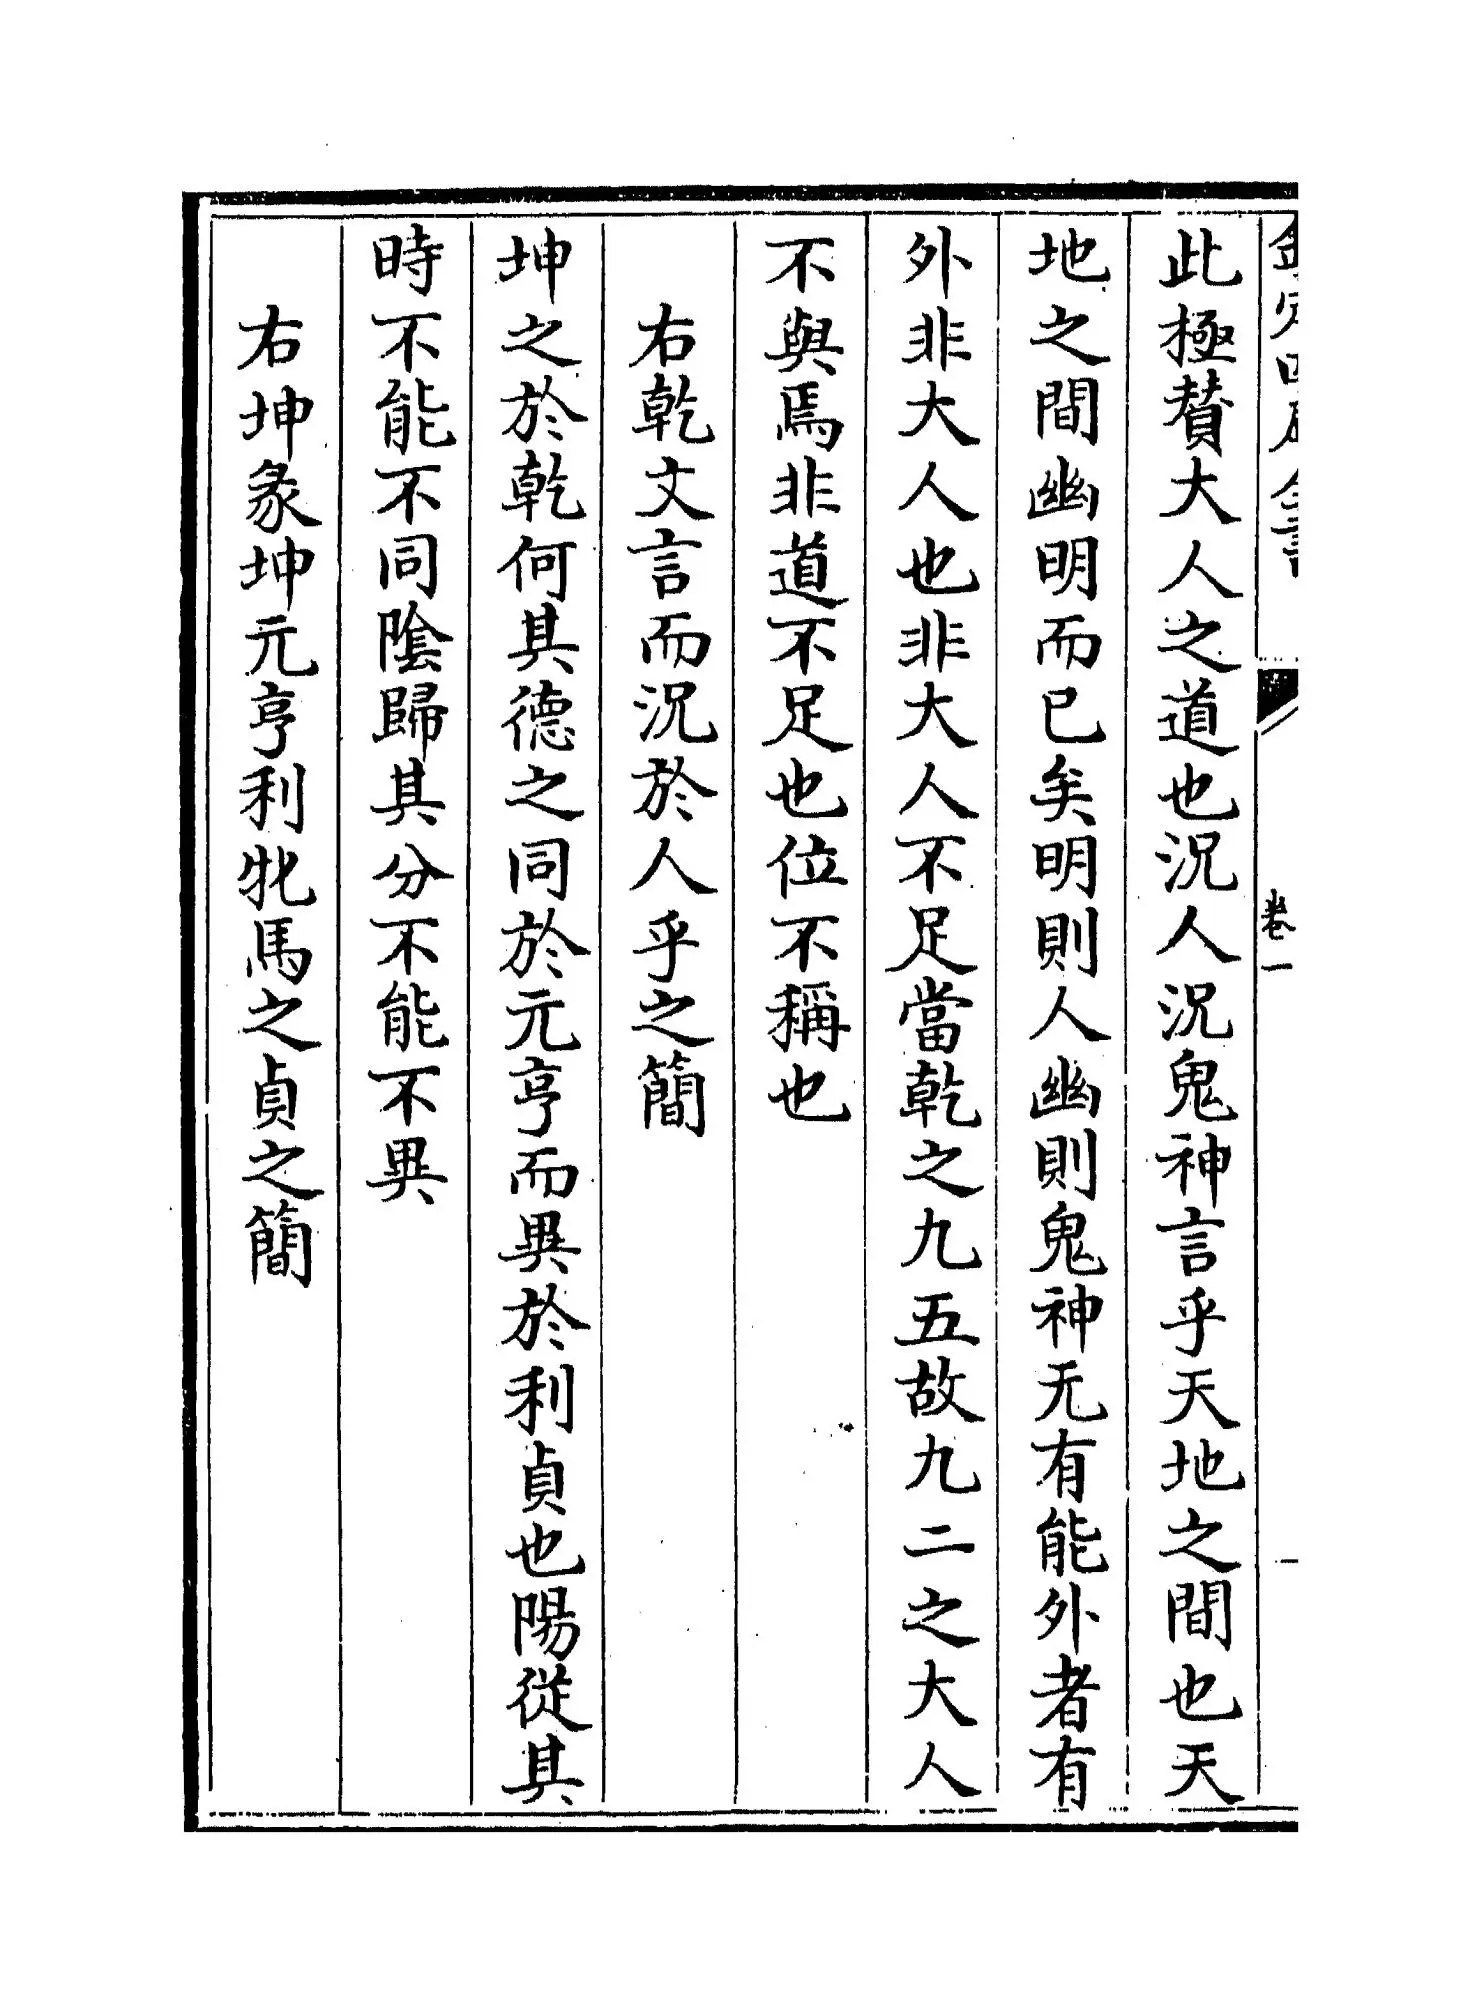 欽定四庫全書
卷一
此極賛大人之道也況人況鬼神言乎天地之間也天
地之間幽明而已矣明則人幽則鬼神无有能外者有
外非大人也非大人不足當乾之九五故九二之大人
不與焉非道不足也位不稱也
右乾文言而況於人乎之簡
坤之於乾何其德之同於元亨而異於利貞也陽從其
時不能不同陰歸其分不能不異
右坤彖坤元亨利牝馬之貞之簡